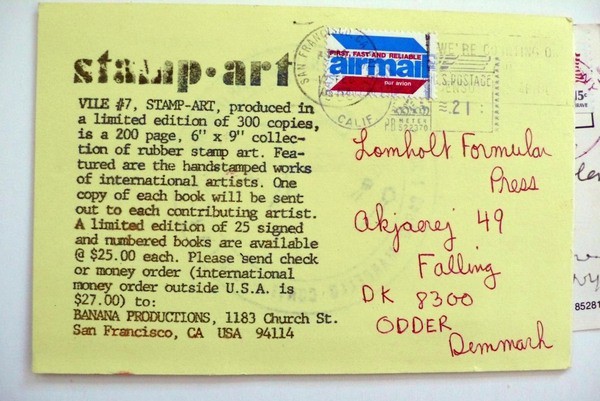 stamp·art
VILE #7, STAMP-ART, produced in
a limited edition of 300 copies,
is a 200 page, 6" x 9" collec-
tion of rubber stamp art. Fea-
tured are the handstamped works
of international artists. One
copy of each book will be sent
out to each contributing artist.
A limited edition of 25 signed
and numbered books are available
@ $25.00 each. Please send check
or money order (international
money order outside U.S.A. is
$27.00) to:
BANANA PRODUCTIONS, 1183 Church St.
San Francisco, CA USA 94114
SAN FRANCISCO
CALIF
FIRST, FAST AND RELIABLE
airmail
par avion
WE'RE COUNTING O
U.S. POSTAGE
.21
METER
Lomholt Formular
Press
Akjaerej 49
Falling
DK 8300
ODDER
Demmark
15¢
85281